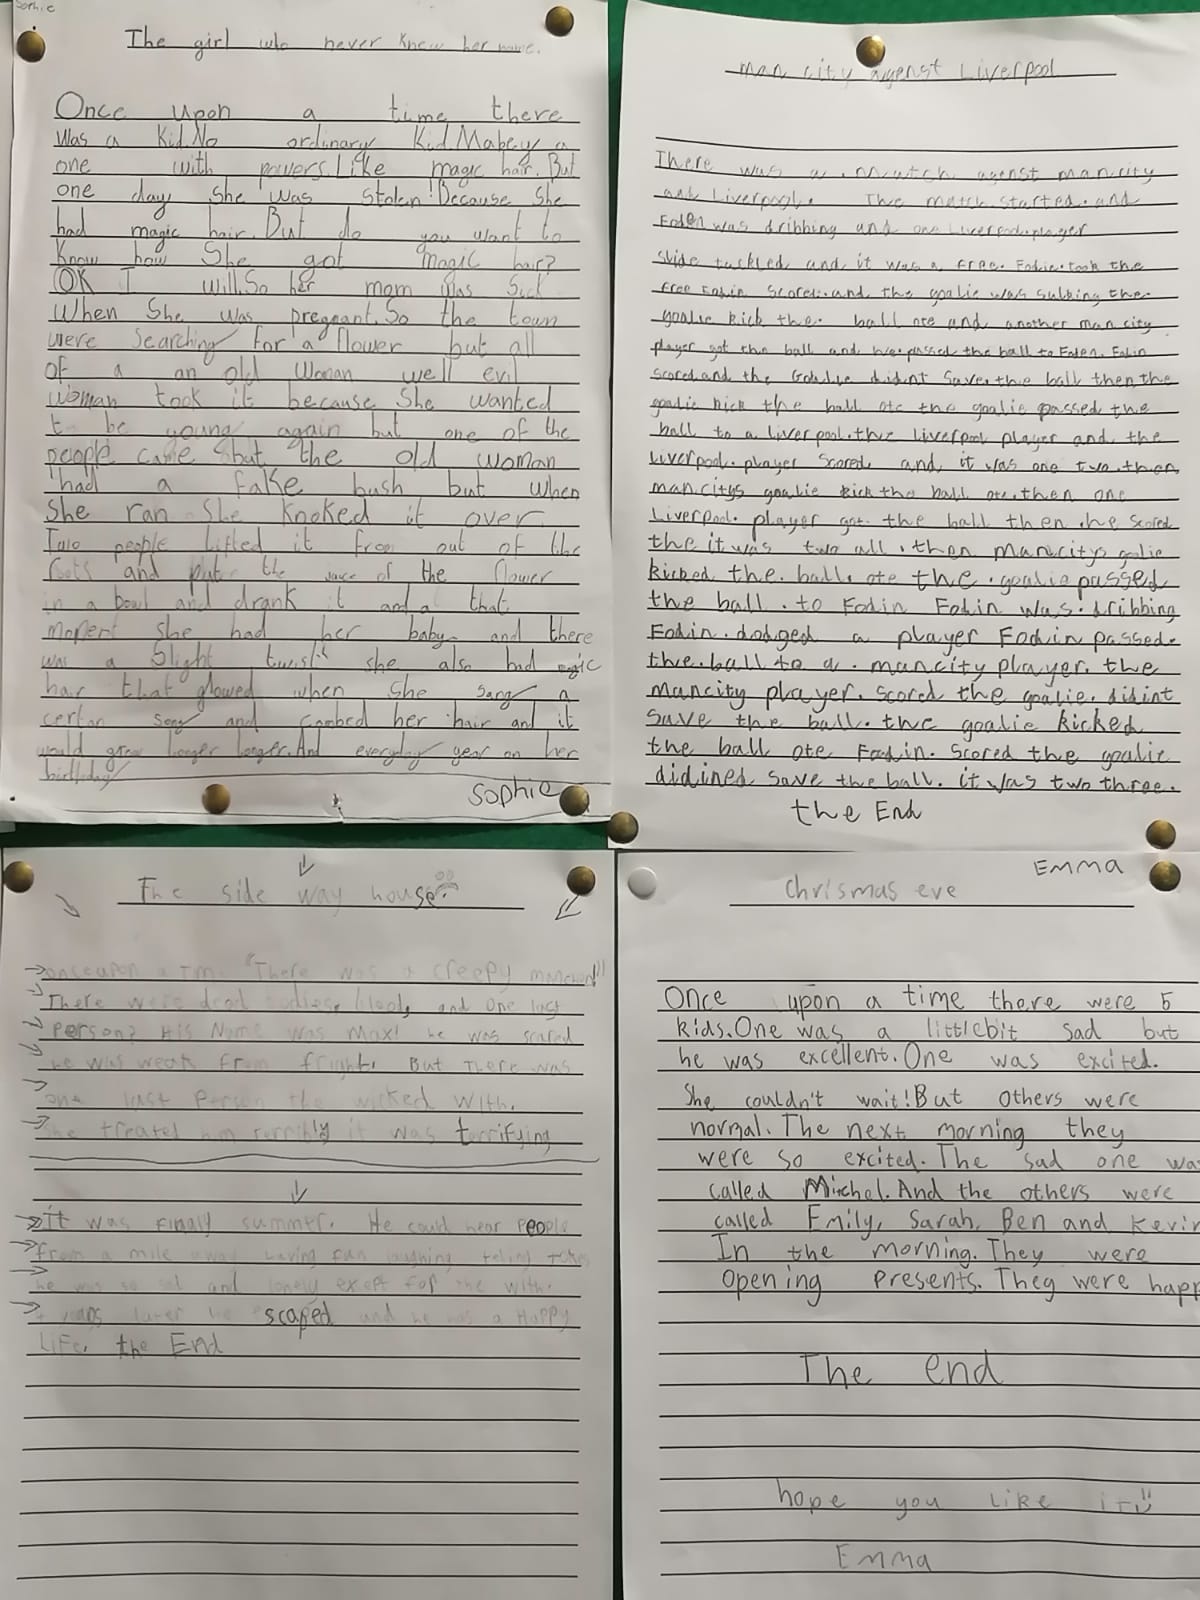 Sophie
The girl who never knew her name.
Once upon a time there
was a kid.No ordinary kid.Mabey a
one with powers.Like magic hair. But
one day she was stolen!Because she
had magic hair. But do you want to
know how she got magic hair?
OK I will.So her mom was sick
when she was pregnant.So the town
were searching for a flower but all
of a an old woman well evil
woman took it because she wanted
t be young again but one of the
people came but the old woman
had a fake bush but when
she ran she knoked it over
Two people lifted it from out of the
roots and put the juice of the flower
in a bowl and drank it and a that
moment she had her baby and there
was a slight twist she also had magic
hair that glowed when she sang a
certan song and combed her hair and it
would grow longer longer.And everyday year on her
birthday
Sophie
man city agenst Liverpool
There was a match agenst man city
and Liverpool. The match started. and
Foden was dribbing and one Liverpool player
slide tackled and it was a free. Fodin. took the
free Fodin scored. and the goalie was sulking the
goalie kick the ball ote and another man city
player got the ball and he passed the ball to Foden. Fodin
scored and the Goalie didint save the ball then the
goalie kick the ball ote the goalie passed the
ball to a liverpool. the liverpool player and the
Liverpool. player scored and it was one two. then
mancitys goalie kick the ball ote. then one
Liverpool. player got the ball then he scored
the it was two all. then mancitys golie
kicked the. ball. ote the. goalie passed
the ball. to Fodin Fodin was. dribbing
Fodin. dodged a player Fodin passed.
the. ball to a. mancity player. the
mancity player. scored the goalie. didint
save the ball. the goalie kicked
the ball ote Fodin. scored the goalie
didined save the ball. it was two three.
the End
The side way house
once upon a tim. "There was a creepy manchon!!
There were dead bodies, blood, and one last
Person? His Name was max! he was scared
he was weak from fright. But There was
one last Person the wicked with.
She treated him rorribly it was terrifying
it was finaly summer. He could hear people
from a mile away having fun laughing
he was so sad and lonely except for the with.
years later he scaped and he was a Happy
LiFe. the End
EMMA
Chrismas eve
Once upon a time there were 5
kids.One was a littlebit sad but
he was excellent.One was excited.
She couldn't wait!But others were
normal. The next morning they
were so excited. The sad one wa
called Michel.And the others were
called Emily, Sarah, Ben and Kevin
In the morning. They were
opening presents. They were happ
The end
hope you like it
Emma